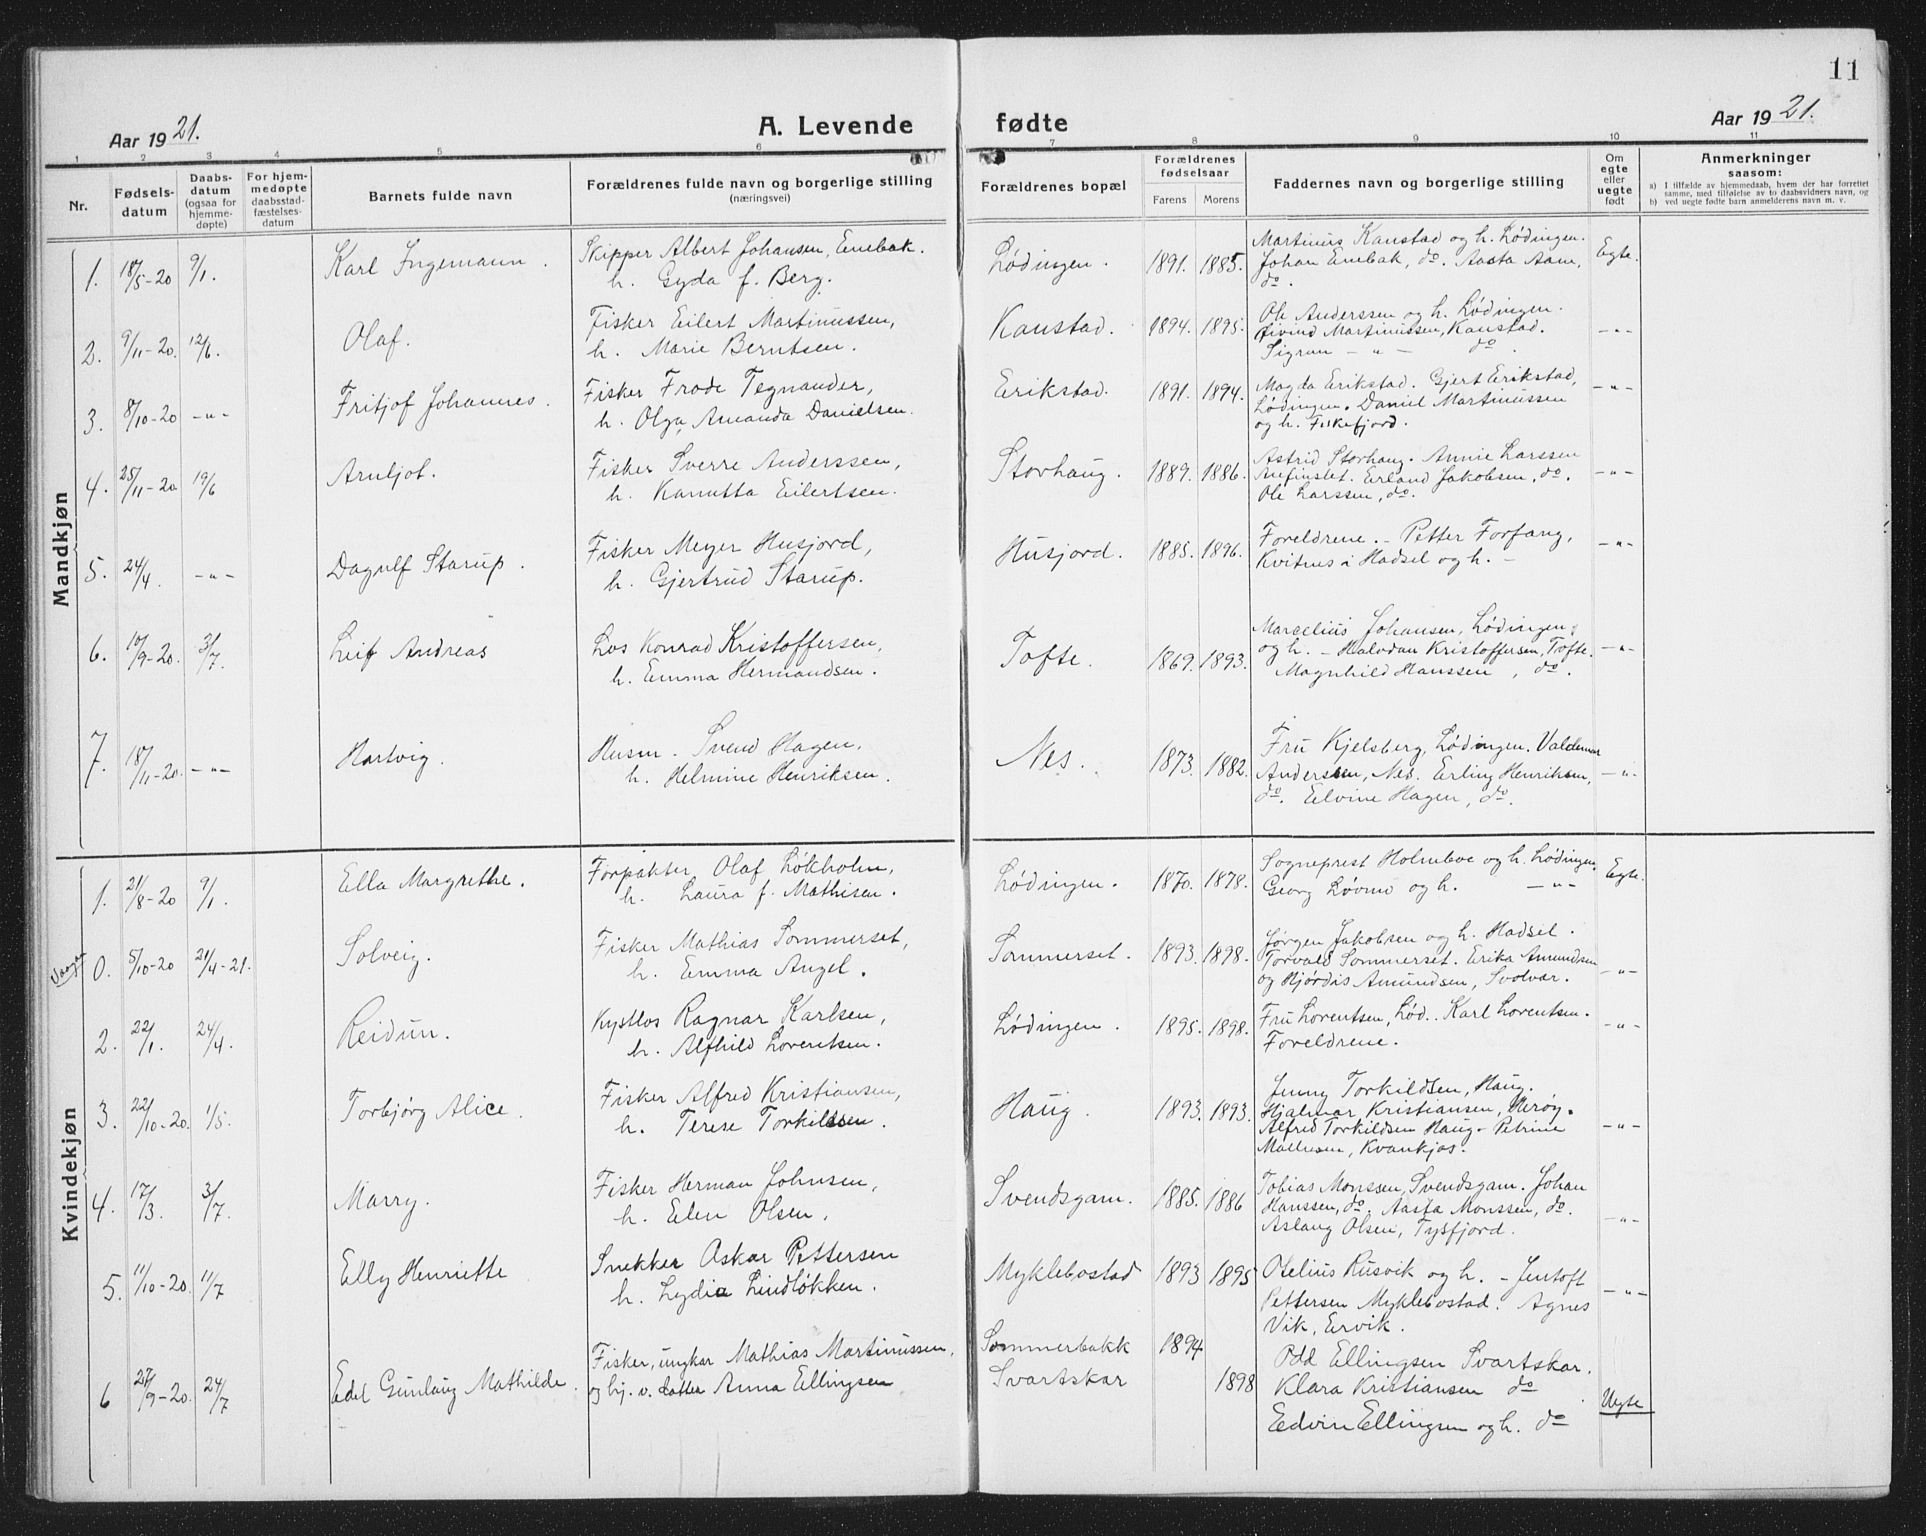 11
Aar 1921.
A. Levende
fødte
Aar 1921.
1 2 3 4 5 6 7 8 9 10 11
Nr.
Fødsels-
datum
Daabs-
datum
(ogsaa for
hjemme-
døpte)
For hjem-
medøpte
daabsstad-
fæstelses-
datum
Barnets fulde navn
Forældrenes fulde navn og borgerlige stilling
(næringsvei)
Forældrenes bopæl
Forældrenes
fødselsaar
Farens Morens
Faddernes navn og borgerlige stilling
Om
egte
eller
uegte
født
Anmerkninger
saasom:
a) I tilfælde av hjemmedaab, hvem der har forrettet
samme, med tilføielse av to daabsvidners navn, og
b) ved uegte fødte barn anmelderens navn m. v.
Mandkjøn
1. 18/5-20 9/1. Karl Ingemann.
Skipper Albert Johansen, Enebak.
h. Gyda f. Berg.
Lødingen. 1891. 1885.
Martinus Kanstad og h. Lødingen.
Johan Enebak, do. Aasta Aam,
do.
Egte.
2. 9/11-20. 12/6. Olaf.
Fisker Eilert Martinussen,
h. Marie Berntsen.
Kanstad. 1894. 1895.
Ole Anderssen og h. Lødingen.
Øivind Martinussen, Kanstad.
Sigrun - " - do.
-"-
3. 8/10-20 -"- Fritjof Johannes.
Fisker Frode Tegnander,
h. Olga Amanda Danielsen.
Erikstad. 1891. 1894.
Magda Erikstad. Gjert Erikstad,
Lødingen. Daniel Martinussen
og h. Fiskefjord.
-"-
4. 25/11-20 19/6 Arnljot.
Fisker Sverre Anderssen,
h. Kanutta Eilertsen.
Storhaug. 1889. 1886.
Astrid Storhaug. Annie Larssen
Anfinslet. Erland Jakobsen, do.
Ole Larssen, do.
-"-
5. 24/4. -"- Dagulf Starup.
Fisker Meyer Husjord,
h. Gjertrud Starup.
Husjord. 1885. 1896.
Foreldrene. - Petter Forfang,
Kvitnes i Hadsel og h. -
-"-
6. 10/9-20. 3/7. Leif Andreas
Los Konrad Kristoffersen,
h. Emma Hermandsen.
Tofte. 1869. 1893.
Marcelius Johansen, Lødingen,
og h. - Halvdan Kristoffersen, Tofte.
Magnhild Hanssen, do.
-"-
7. 18/11-20. -"- Hartvig.
Husm. Svend Hagen,
h. Helmine Henriksen.
Nes. 1873. 1882.
Fru Kjelsberg, Lødingen. Valdemar
Anderssen, Nes. Erling Henriksen,
do. Elvine Hagen, do.
-"-
Kvindekjøn
1. 21/8-20 9/1. Ella Margrethe.
Forpakter Olaf Løkholm,
h. Laura f. Mathisen.
Lødingen. 1870. 1878.
Sogneprest Holmboe og h. Lødingen.
Georg Løvmo og h. -"-
Egte.
0. 5/10-20 21/4-21. Solveig.
Fisker Mathias Sommerset,
h. Emma Angel.
Sommerset. 1893. 1898.
Jørgen Jakobsen og h. Hadsel.
Torvald Sommerset. Erika Amundsen
og Hjørdis Amundsen, Svolvær.
-"-
2. 22/1. 24/4. Reidun.
Kystlos Ragnar Karlsen,
h. Alfhild Lorentsen.
Lødingen. 1895. 1898.
Fru Lorentsen, Lød.. Karl Lorentsen.
Foreldrene.
-"-
3. 22/10-20. 1/5. Torbjørg Alice.
Fisker Alfred Kristiansen,
h. Terese Torkildsen.
Haug. 1893. 1893.
Jenny Torkildsen, Haug.
Hjalmar Kristiansen, Herøy.
Alfred Torkildsen Haug - Petrine
Mathisen, Kvankjos.
-"-
4. 17/3. 3/7. Marry.
Fisker Herman Johnsen,
h. Elen Olsen.
Svendsgam. 1885. 1886
Tobias Monssen, Svendsgam. Johan
Hanssen, do. Aasta Monssen, do.
Aslaug Olsen, Tysfjord.
-"-
5. 11/10-20. 11/7 Elly Henriette
Snekker Oskar Pettersen
h. Lydia Lindløkken.
Myklebostad 1893 1895
Otelius Rusvik og h. - Jentoft
Pettersen Myklebostad. Agnes
Vik, Ervik.
-"-
6 27/9-20. 24/7 Edel Gunlaug Mathilde.
Fisker, ungkar Mathias Martinussen,
og hj. v. datter Anna Ellingsen
Sommerbakk 1894
Svartskar 1898
Odd Ellingsen Svartskar.
Klara Kristiansen do
Edvin Ellingsen og h. do
Uegte